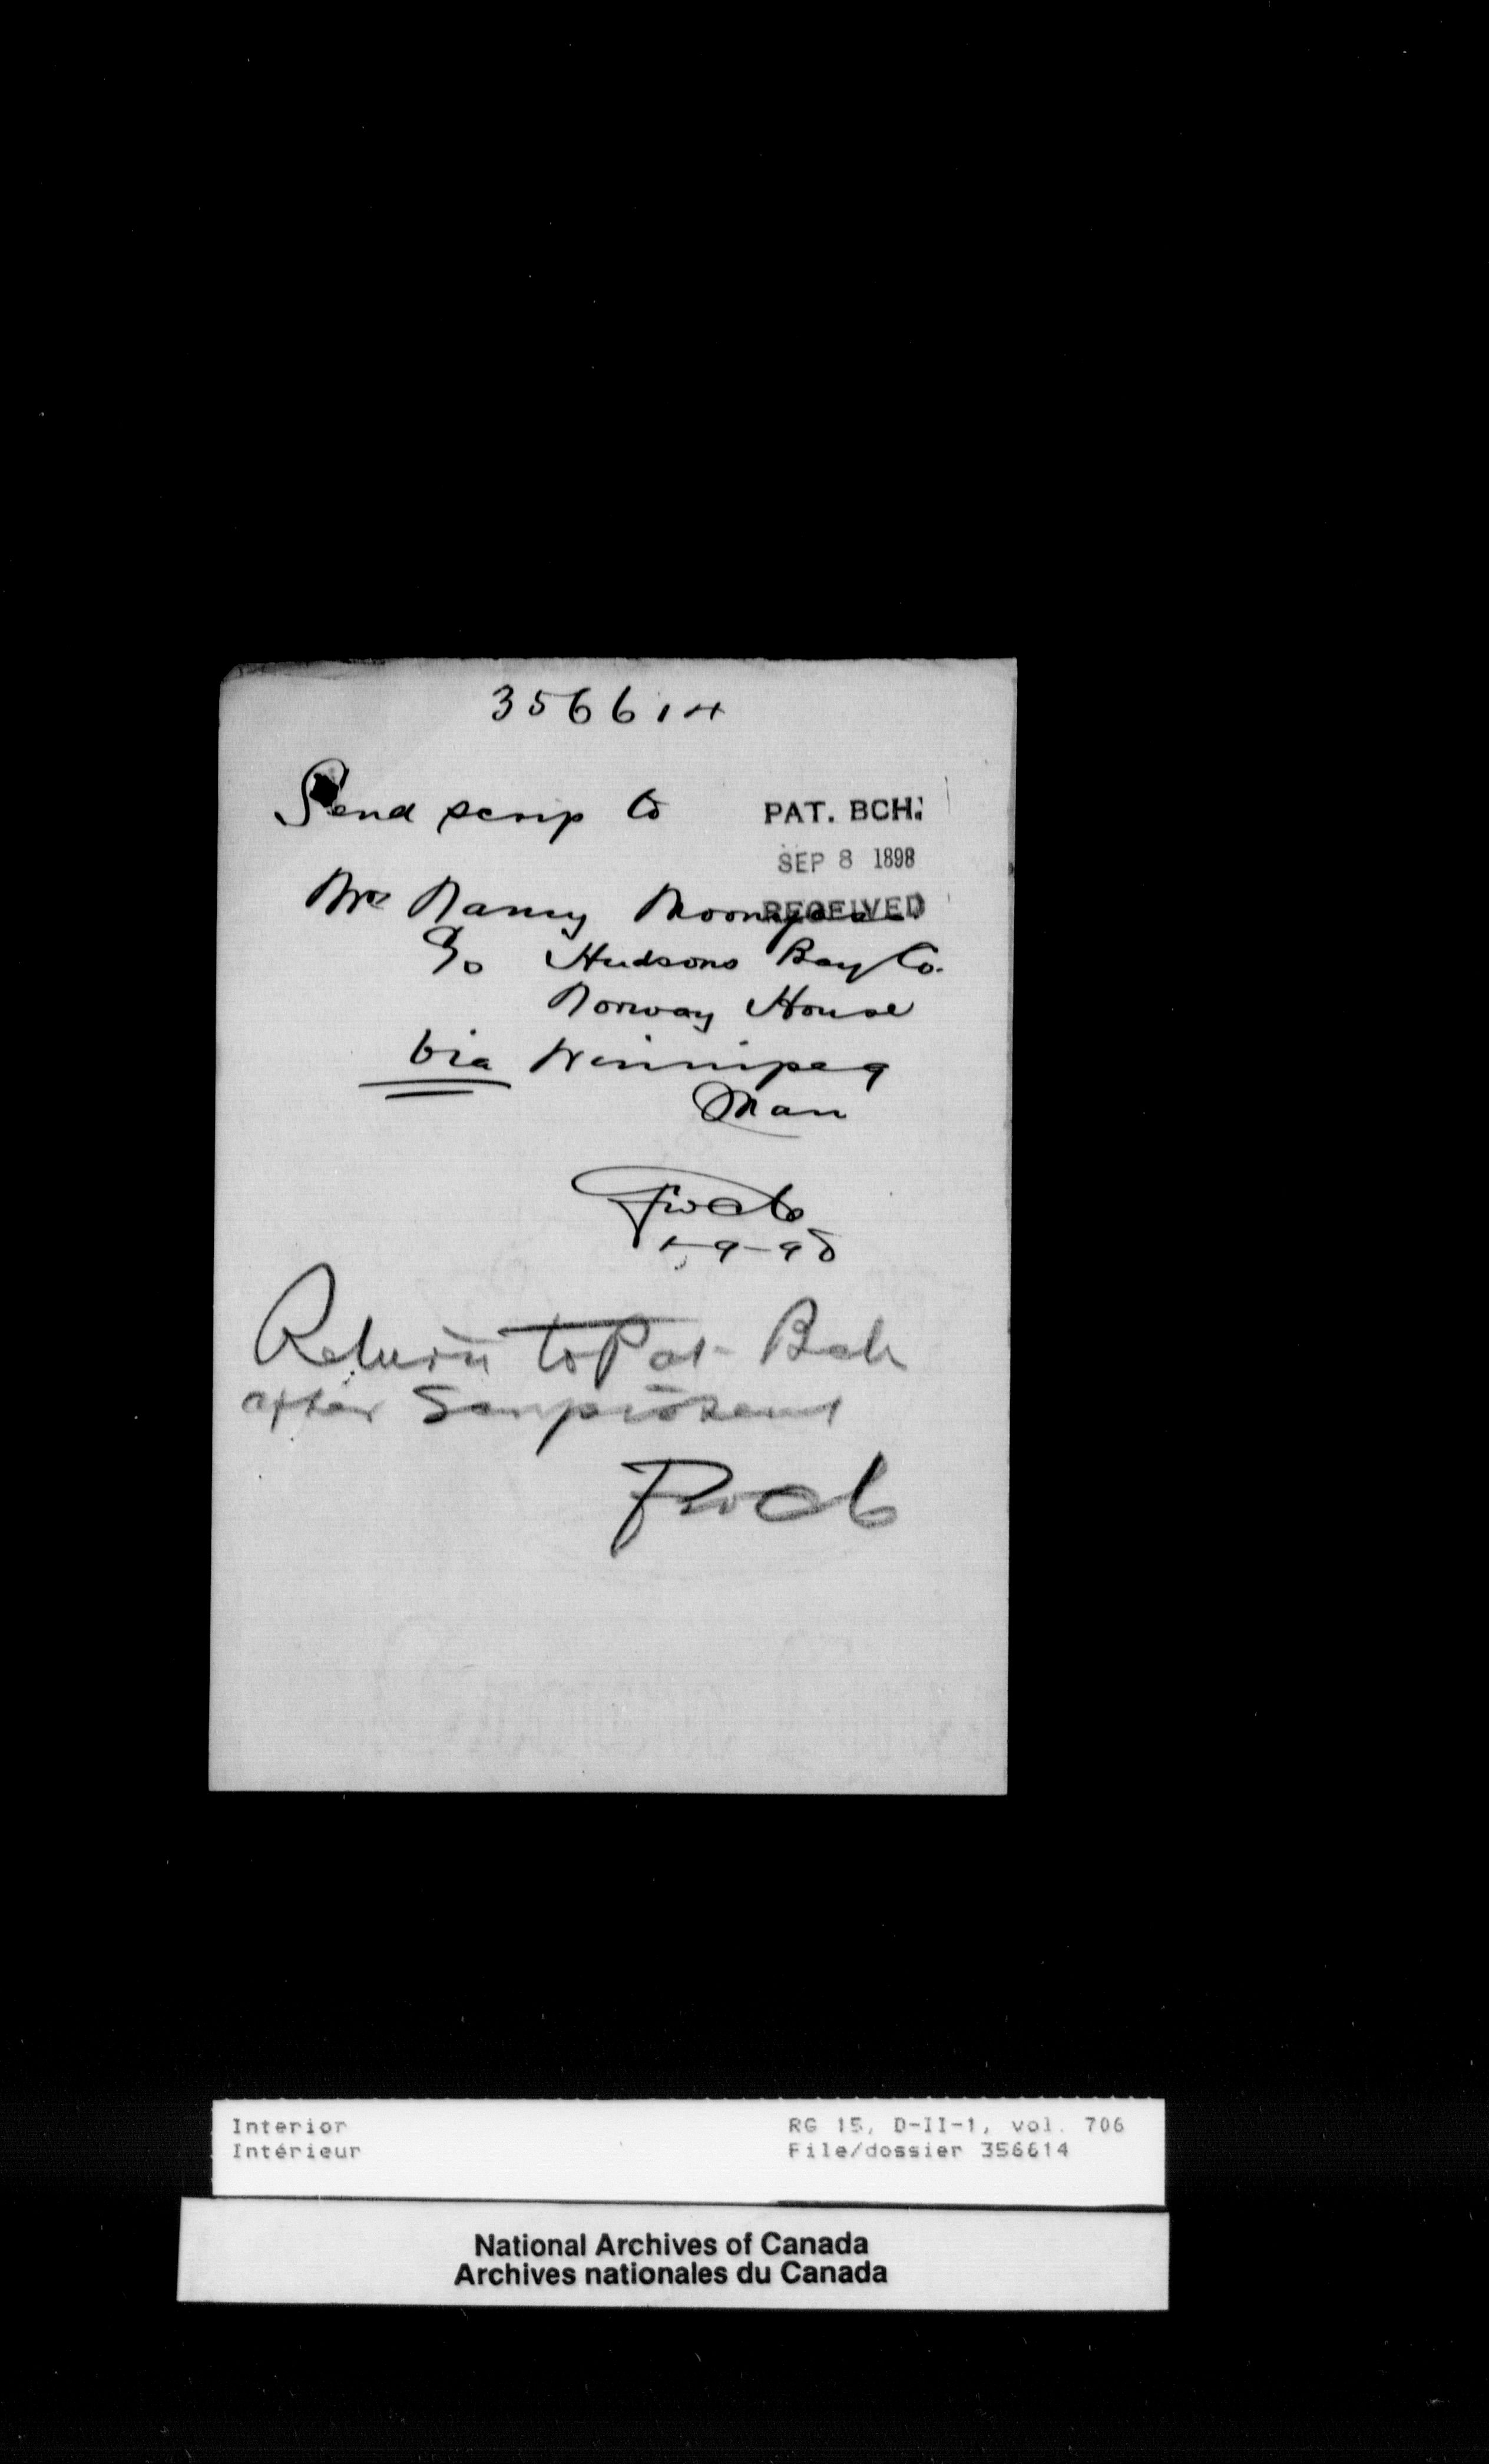 356614
Send scrip to
PAT. BCH.
SEP 8 1898
RECEIVED
Mrs Nancy
c/o Hudsons Bay Co.
Norway House
via Winnipeg
Man
-9-98
Return to Pat Bch
after Scrip is sent
Interior
Intérieur
RG 15, D-II-1, vol. 706
File/dossier 356614
National Archives of Canada
Archives nationales du Canada